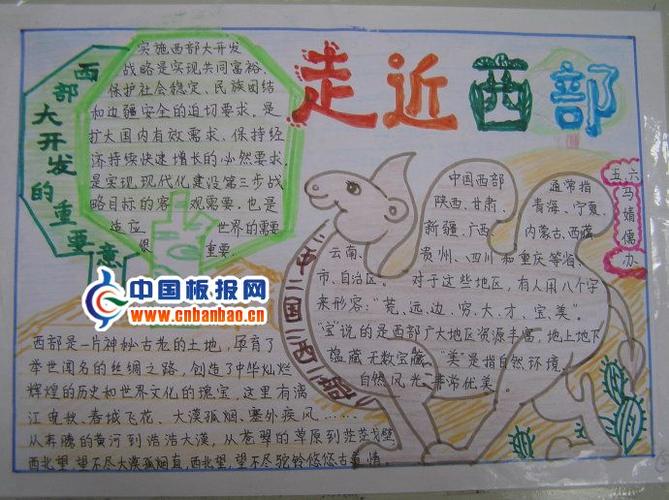 走近西部
西部大开发的重要意
实施西部大开发
战略是实现共同富裕、
保护社会稳定、民族团结
和边疆安全的迫切要求,是
扩大国内有效需求、保持经
济持续快速增长的必然要求,
是实现现代化建设第三步战
略目标的客观需要,也是
适应 世界的需要
很 重要.
五六
马婧儒办
中国西部 通常指
陕西、甘肃、 青海、宁夏、
新疆、广西、 内蒙古、西藏、
云南、 贵州、四川和重庆等省、
市、自治区。 对于这些地区,有人用八个字
来形容:“荒、远、边、穷、大、才、宝、美”。
“宝”说的是西部广大地区资源丰富,地上地下
蕴藏无数宝藏。“美”是指自然环境,
自然风光非常优美。
中国西部
中国板报网
www.cnbanbao.cn
西部是一片神秘古老的土地,孕育了
举世闻名的丝绸之路,创造了中华灿烂
辉煌的历史和世界文化的瑰宝,这里有漓
江 、春城飞花、大漠孤烟、塞外疾风……
从奔腾的黄河到浩浩大漠,从苍翠的草原到茫茫戈壁
西北望,望不尽大漠孤烟直,西北望,望不尽驼铃悠悠古 情。